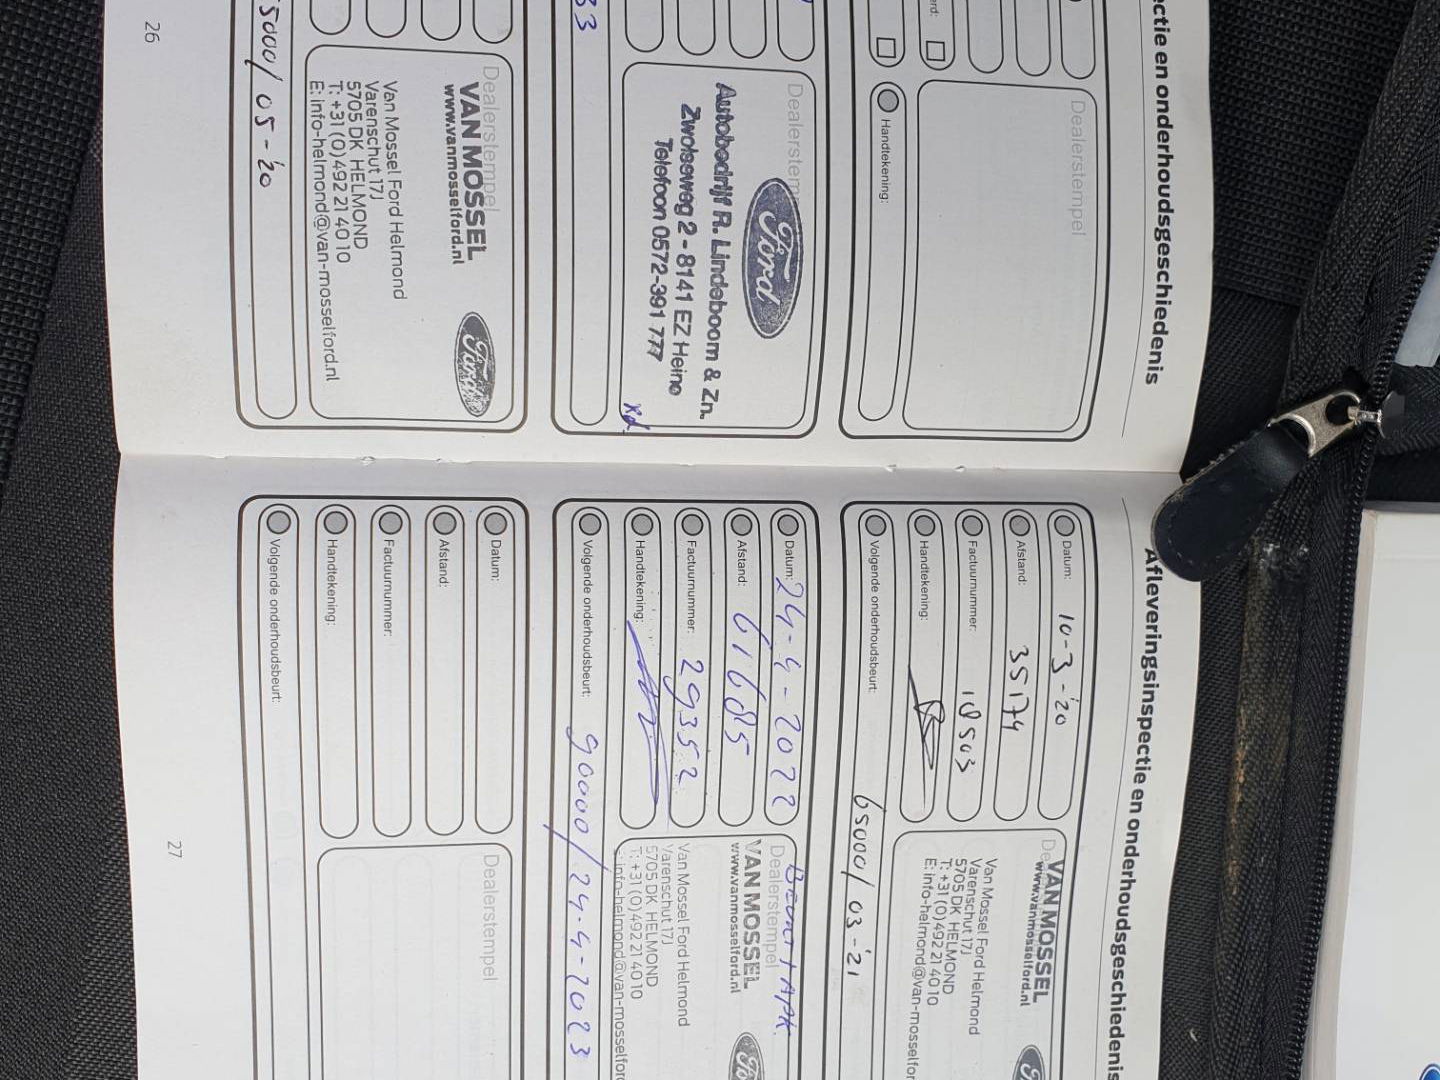 ctie en onderhoudsgeschiedenis
erd:
Dealerstempel
Handtekening:
Dealerstempel
Ford
Autobedrijf R. Lindeboom & Zn.
Zwolseweg 2 - 8141 EZ Heino
Telefoon 0572-391 777
33
Dealerstempel
VAN MOSSEL
www.vanmosselford.nl
Ford
Van Mossel Ford Helmond
Varenschut 17J
5705 DK HELMOND
T: +31 (0)492 21 40 10
E: info-helmond@van-mosselford.nl
5000/ 05-'20
26
Afleveringsinspectie en onderhoudsgeschiedenis
Datum: 10-3-'20
Afstand: 35174
Factuurnummer: 18503
Handtekening:
Volgende onderhoudsbeurt: 65000/ 03-'21
VAN MOSSEL
www.vanmosselford.nl
Van Mossel Ford Helmond
Varenschut 17J
5705 DK HELMOND
T: +31 (0)492 21 40 10
E: info-helmond@van-mosselfor
Datum: 24-4-2022
Afstand: 61685
Factuurnummer: 29352
Handtekening:
Volgende onderhoudsbeurt: 90000/24-4-2023
Beurt + APK
Dealerstempel
VAN MOSSEL
www.vanmosselford.nl
Van Mossel Ford Helmond
Varenschut 17J
5705 DK HELMOND
T: +31 (0)492 21 40 10
E: info-helmond@van-mosselfor
Datum:
Afstand:
Factuurnummer:
Handtekening:
Volgende onderhoudsbeurt:
Dealerstempel
27